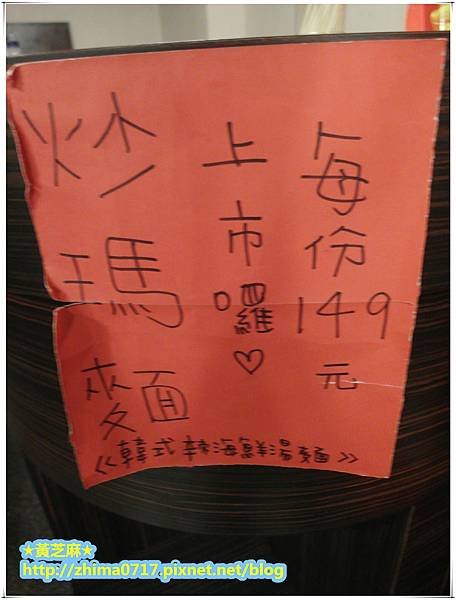 炒瑪麵
上市囉♡
每份149元
<<韓式辣海鮮湯麵>>
★黃芝麻★
http://zhima0717.pixnet.net/blog